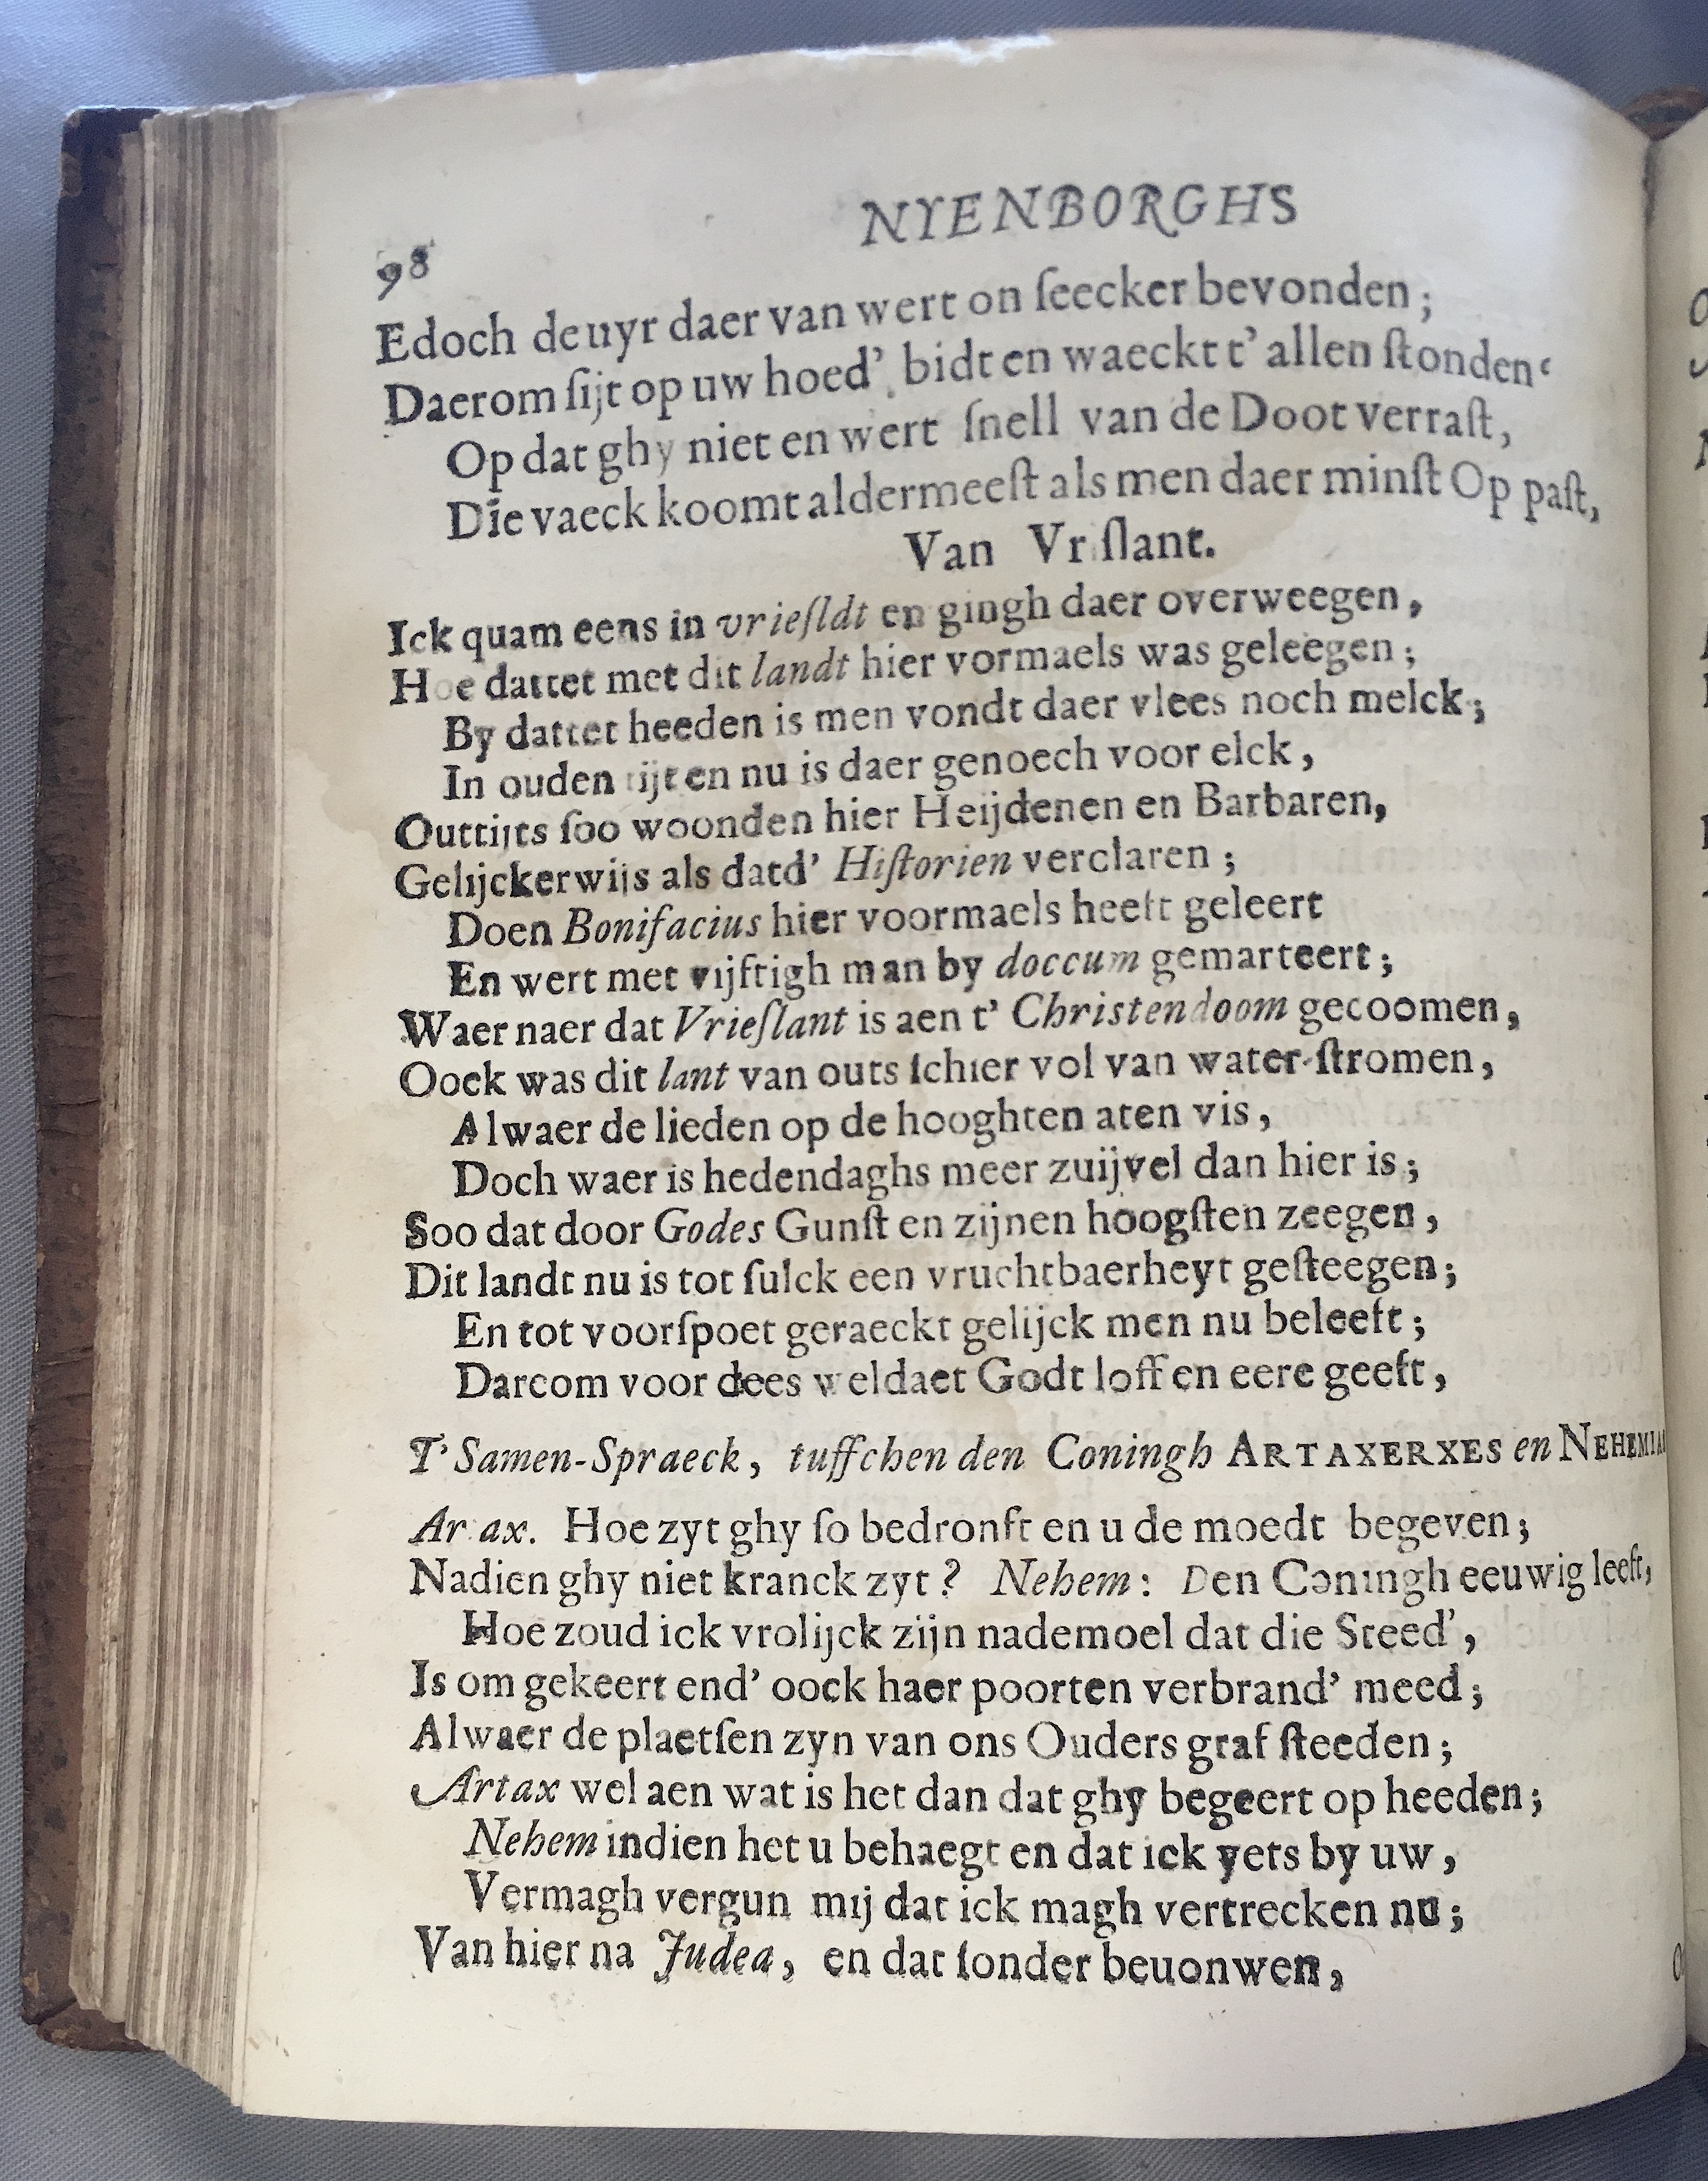 98
NYENBORGHS
Edoch de uyr daer van wert on ſeecker bevonden;
Daerom ſijt op uw hoed', bidt en waeckt t' allen ſtonden
Op dat ghy niet en wert ſnell van de Doot verraſt,
Die vaeck koomt aldermeeſt als men daer minſt Op paſt,
Van Vrſlant.
Ick quam eens in vrieſldt en gingh daer overweegen,
Hoe dattet met dit landt hier vormaels was geleegen;
By dattet heeden is men vondt daer vlees noch melck;
In ouden tijt en nu is daer genoech voor elck,
Outtijts ſoo woonden hier Heijdenen en Barbaren,
Gelijckerwijs als datd' Hiſtorien verclaren;
Doen Bonifacius hier voormaels heeft geleert
En wert met vijftigh man by doccum gemarteert;
Waer naer dat Vrieſlant is aen t' Christendoom gecoomen,
Oock was dit lant van outs ſchier vol van water-ſtromen,
Alwaer de lieden op de hooghten aten vis,
Doch waer is hedendaghs meer zuijvel dan hier is;
Soo dat door Godes Gunſt en zijnen hoogſten zeegen,
Dit landt nu is tot ſulck een vruchtbaerheyt geſteegen;
En tot voorſpoet geraeckt gelijck men nu beleeft;
Darcom voor dees weldaet Godt loff en eere geeft,
T' Samen-Spraeck, tuſſchen den Coningh ARTAXERXES en NEHEMIA
Ar ax. Hoe zyt ghy ſo bedronft en u de moedt begeven;
Nadien ghy niet kranck zyt? Nehem: Den Coningh eeuwig leeft,
Hoe zoud ick vrolijck zijn nademoel dat die Steed',
Is om gekeert end' oock haer poorten verbrand' meed;
Alwaer de plaetſen zyn van ons Ouders graf ſteeden;
Artax wel aen wat is het dan dat ghy begeert op heeden;
Nehem indien het u behaegt en dat ick yets by uw,
Vermagh vergun mij dat ick magh vertrecken nu;
Van hier na Judea, en dat ſonder beuonwen,